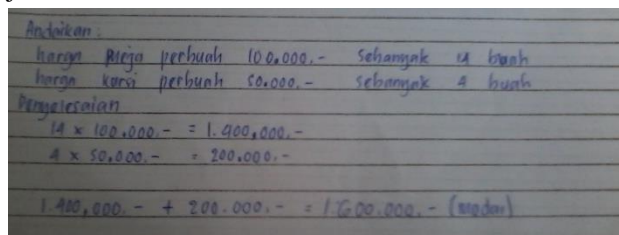 Andaikan :
harga Meja perbuah 100.000.- Sebanyak 14 buah
harga kursi perbuah 50.000.- Sebanyak 4 buah
Penyelesaian
14 x 100.000.- = 1.400.000.-
4 x 50.000.- = 200.000.-
1.400.000.- + 200.000.- = 1.600.000.- (modal)